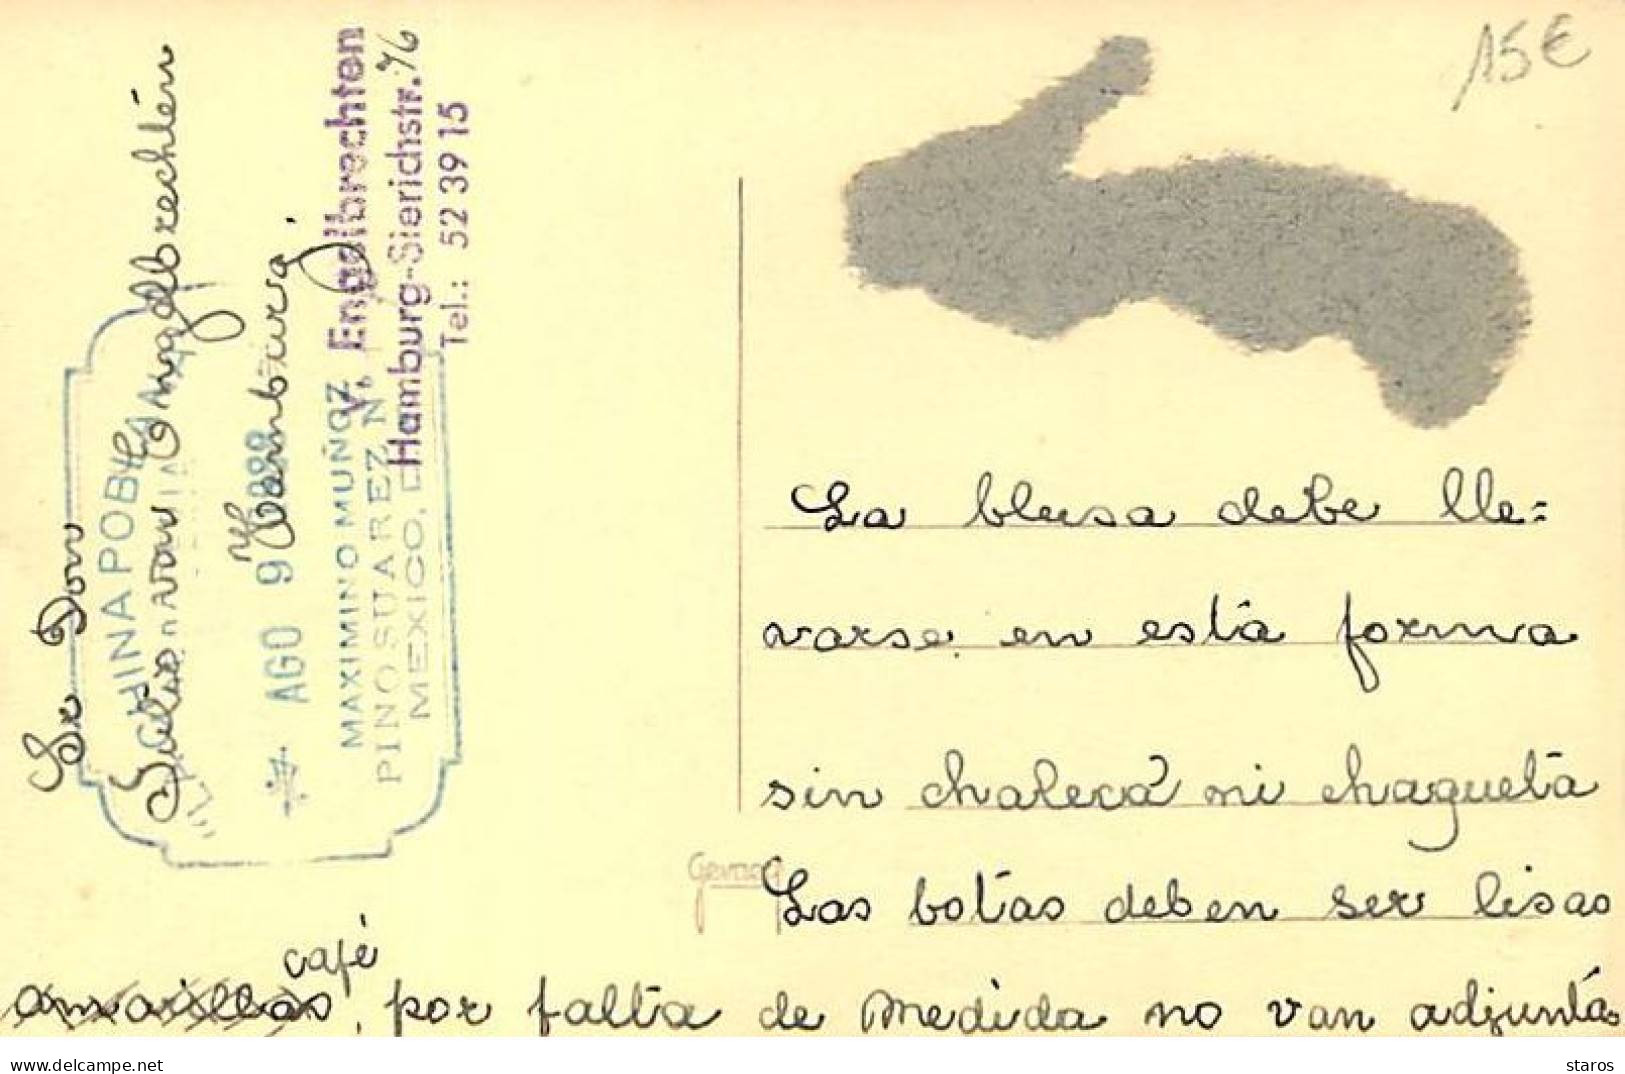 15€
Sr Don
Julio von Engelbrechtén
Hamburgo
V. Engelbrechten
Hamburg-Sierichstr. 76
Tel.: 52 39 15
AGO 9
MAXIMINO MUÑOZ
PINO SUAREZ N
MEXICO, D
La blusa debe lle=
varse en esta forma
sin chaleco ni chaqueta
Gevaert
Las botas deben ser lisas
café
amarillas, por falta de medida no van adjuntas
delcampe.net
staros